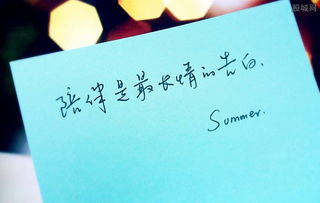 股城网
陪伴是最长情的告白.
Summer.